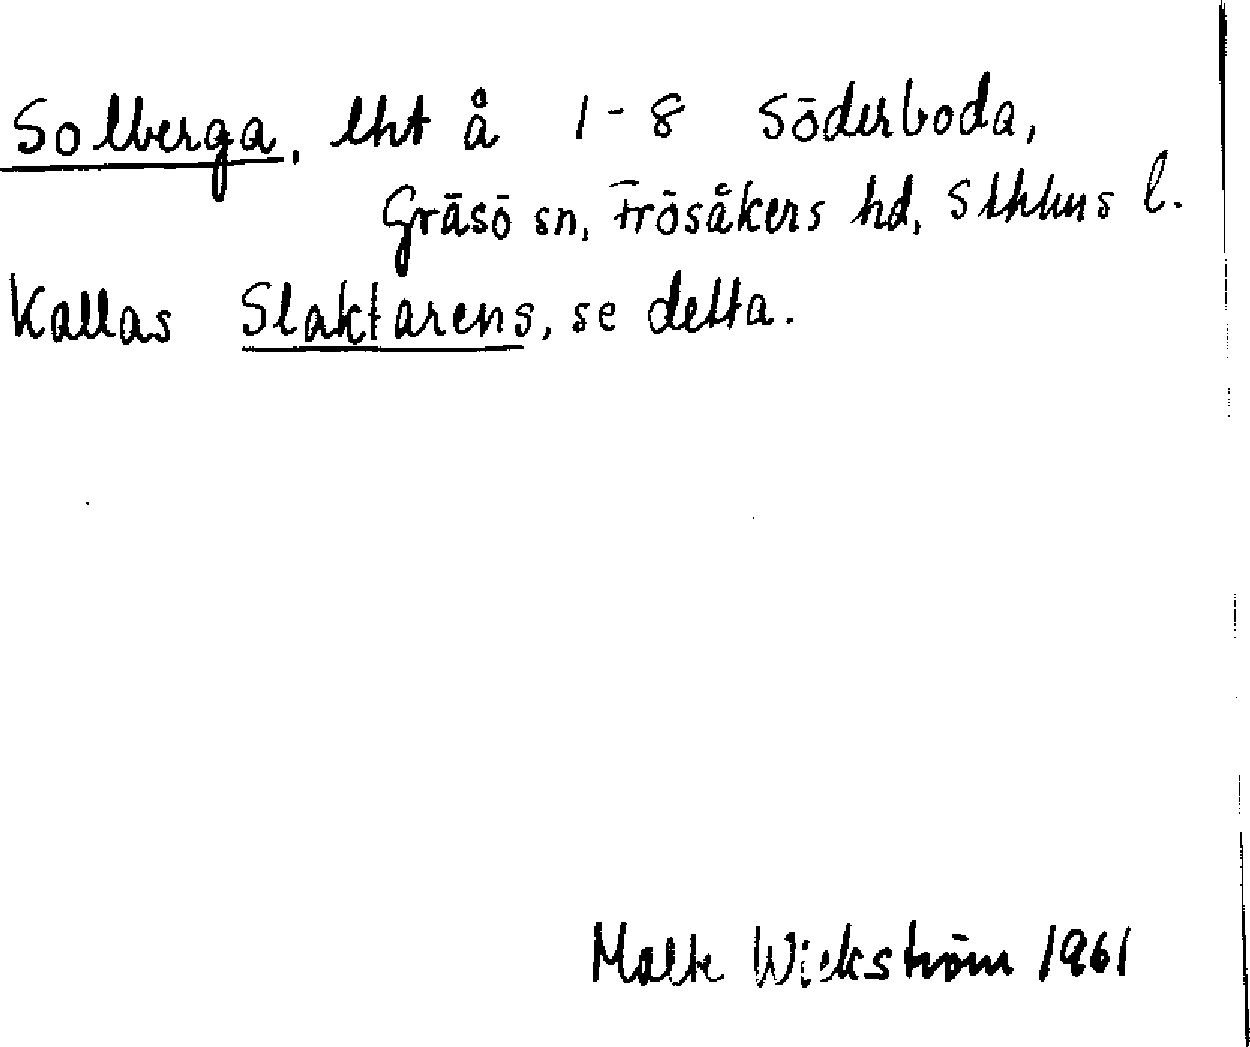 Solberga, lht å 1-8 Söderboda,
Gräsö sn, Frösåkers hd, Sthlms l.
Kallas Slaktarens, se detta.
Malte Wickström 1961